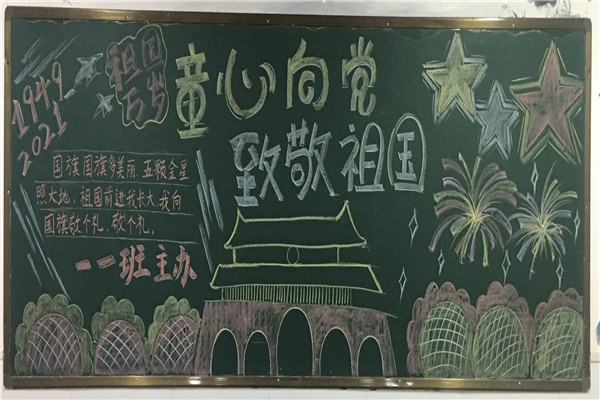 1949
2021
祖国
万岁
童心向党
致敬祖国
国旗国旗多美丽，五颗金星
照大地，祖国前进我长大，我向
国旗敬个礼，敬个礼。
一一班主办